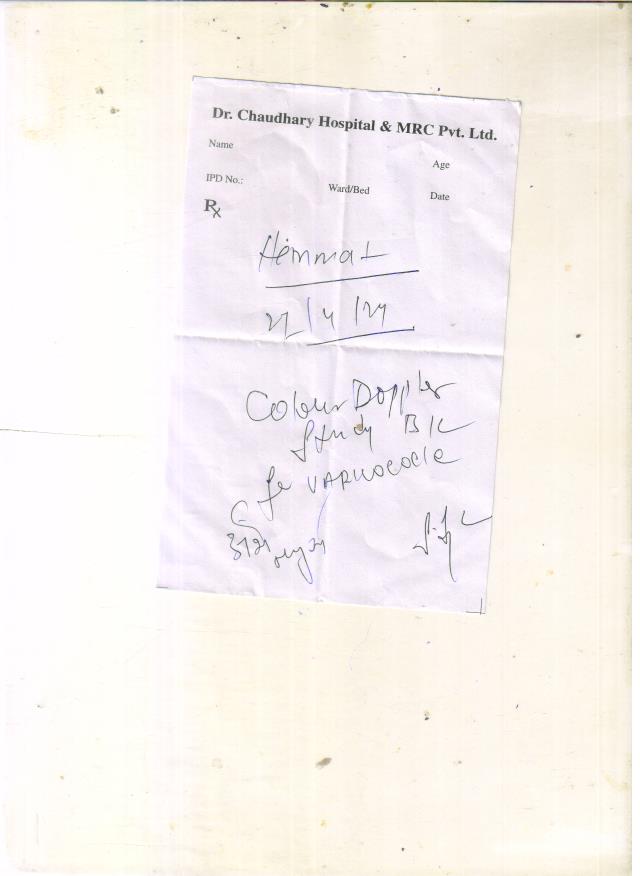 Dr. Chaudhary Hospital & MRC Pvt. Ltd.
Name
Age
IPD No.:
Ward/Bed
Date
Rx
Himmat
27/4/24
Colour Doppler
Study B/L
for VARICOCELE